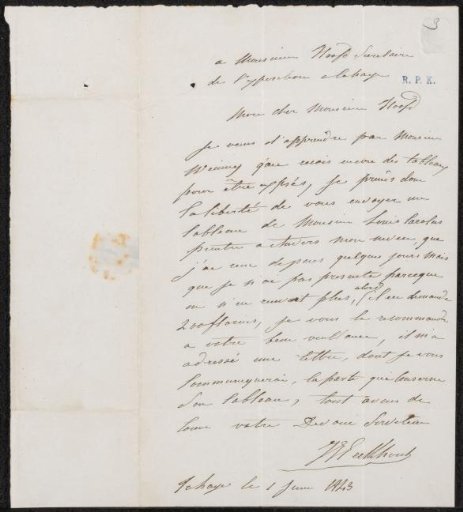 3
a Monsieur Hoofd Secretaire
de l'Exposition a la haye
R. P. K.
Mon cher Monsieur Hoofd
je viens d'apprendre par Monsieur
que recois encore des tableaux
pour être exposés, je prends donc
la liberté de vous envoyer un
tableau de Monsieur Louis
peintre a Anvers mon neveu, que
j'ai reçu depuis quelques jours mais
que je n'ai pas presenté parceque
on n'en recevoit plus, il en demande
abord
200 florins, je vous le recommande
a votre bien veillance, il m'a
adressé une lettre, dont je vous
communiquerai, la partie qui concerne
son tableau, tout avous de
coeur votre Devoué Serviteur
Lahaye le 1 Juin 1843